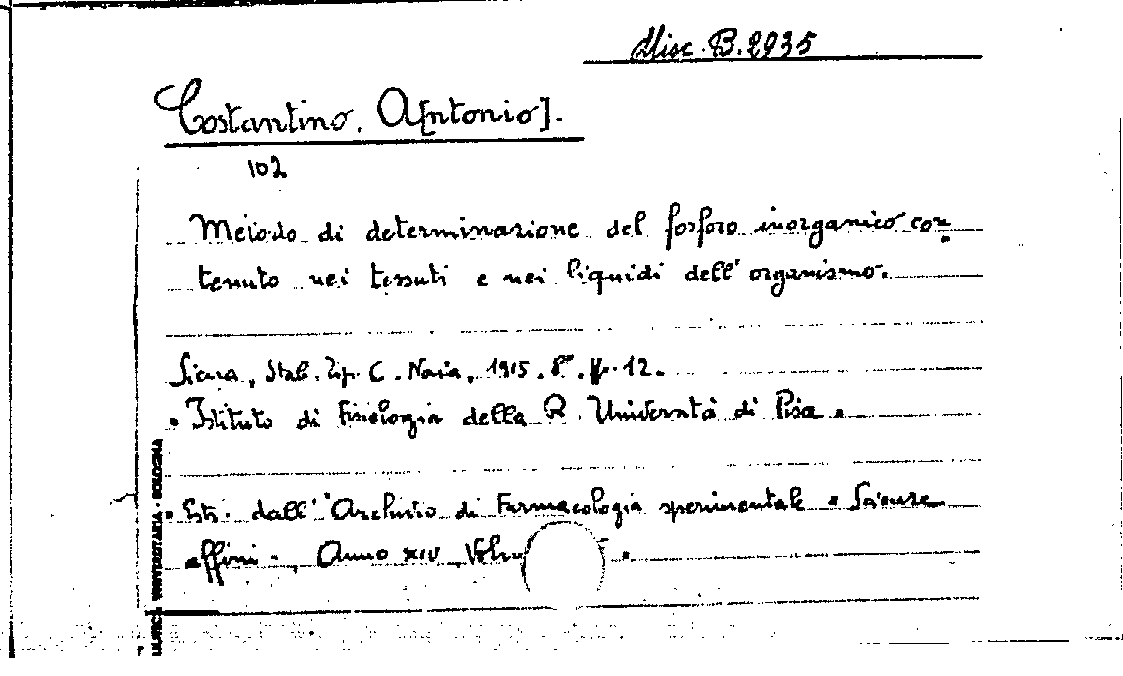 Misc. B. 2935
Costantino, A[ntonio].
102
Metodo di determinazione del fosforo inorganico con=
tenuto nei tessuti e nei liquidi dell' organismo.
Siena, Stab. Tip. C. Nava, 1915. 8º. pp. 12.
Istituto di Fisiologia della R. Università di Pisa.
Estr. dall' "Archivio di Farmacologia sperimentale e Scienze
affini", Anno XIV,
UNIVERSITARIA - BOLOGNA